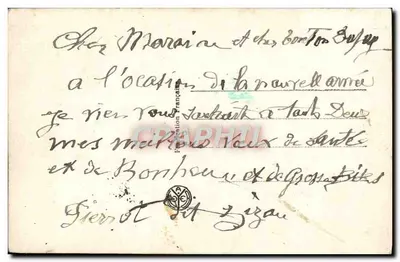 Cher Maraine et cher tonton
a l'ocasion de la nouvell année
je vien vous souhaité a tout Deux
mes meilleurs veux de Santé
et de Bonheur et de Grosse Bises
Pierrot